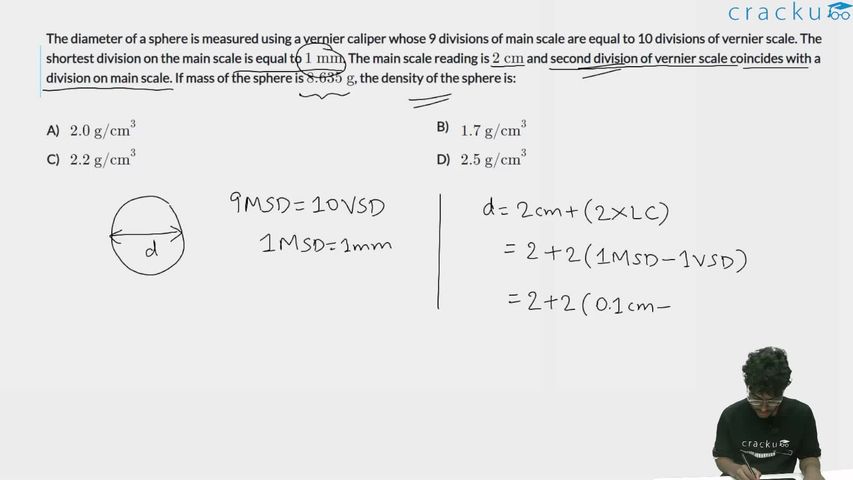 cracku
The diameter of a sphere is measured using a vernier caliper whose 9 divisions of main scale are equal to 10 divisions of vernier scale. The
shortest division on the main scale is equal to 1 mm. The main scale reading is 2 cm and second division of vernier scale coincides with a
division on main scale. If mass of the sphere is 8.635 g, the density of the sphere is:
A) 2.0 g/cm³
B) 1.7 g/cm³
C) 2.2 g/cm³
D) 2.5 g/cm³
d
9MSD=10VSD
1MSD=1mm
d=2cm+(2×LC)
=2+2(1MSD-1VSD)
=2+2(0.1cm-
cracku